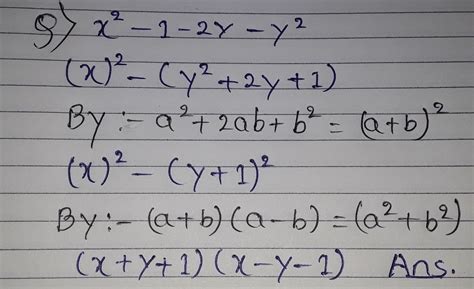 9) x² - 1 - 2y - y²
(x)² - (y² + 2y + 1)
By :- a² + 2ab + b² = (a+b)²
(x)² - (y+1)²
By :- (a+b) (a-b) = (a² + b²)
(x+y+1) (x-y-1) Ans.